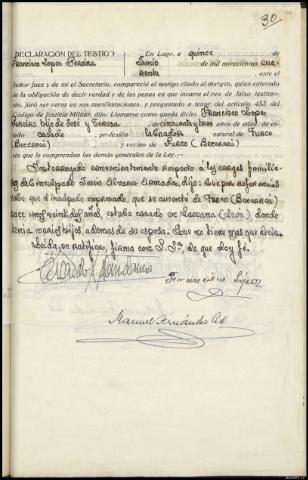 30
DECLARACIÓN DEL TESTIGO
Francisco Lopez Pereira
En Lugo, a quince de
Junio de mil novecientos cua
renta, ante el
Señor Juez y de mí el Secretario, compareció el testigo citado al margen, quien enterado
de la obligación de decir verdad y de las penas en que incurre el reo de falso testimo-
nio, juró ser veraz en sus manifestaciones, y preguntado a tenor del artículo 453 del
Código de Justicia Militar, dijo: Llamarse como queda dicho Francisco Lopez
Pereira hijo de José y Teresa
de cincuenta y tres años de edad, de es-
tado casado profesión labrador natural de Furco
(Becerreá) y vecino de Furco (Becerreá)
sin que le comprendan las demás generales de la Ley.
Interrogado convenientemente respecto a las cargas familia
del inculpado Jesús Alvarez Armada, dijo: Que por referencias
sabe que el inculpado expresado, que se ausentó de Furco (Becerreá)
hace unos veintidós años, estaba casado en (León), donde
tenía varios hijos, además de su esposa. Que no tiene más que decir.
Leída, se ratifica, firma con S.Sª, de que doy fé.
Francisco López
Manuel Fernández